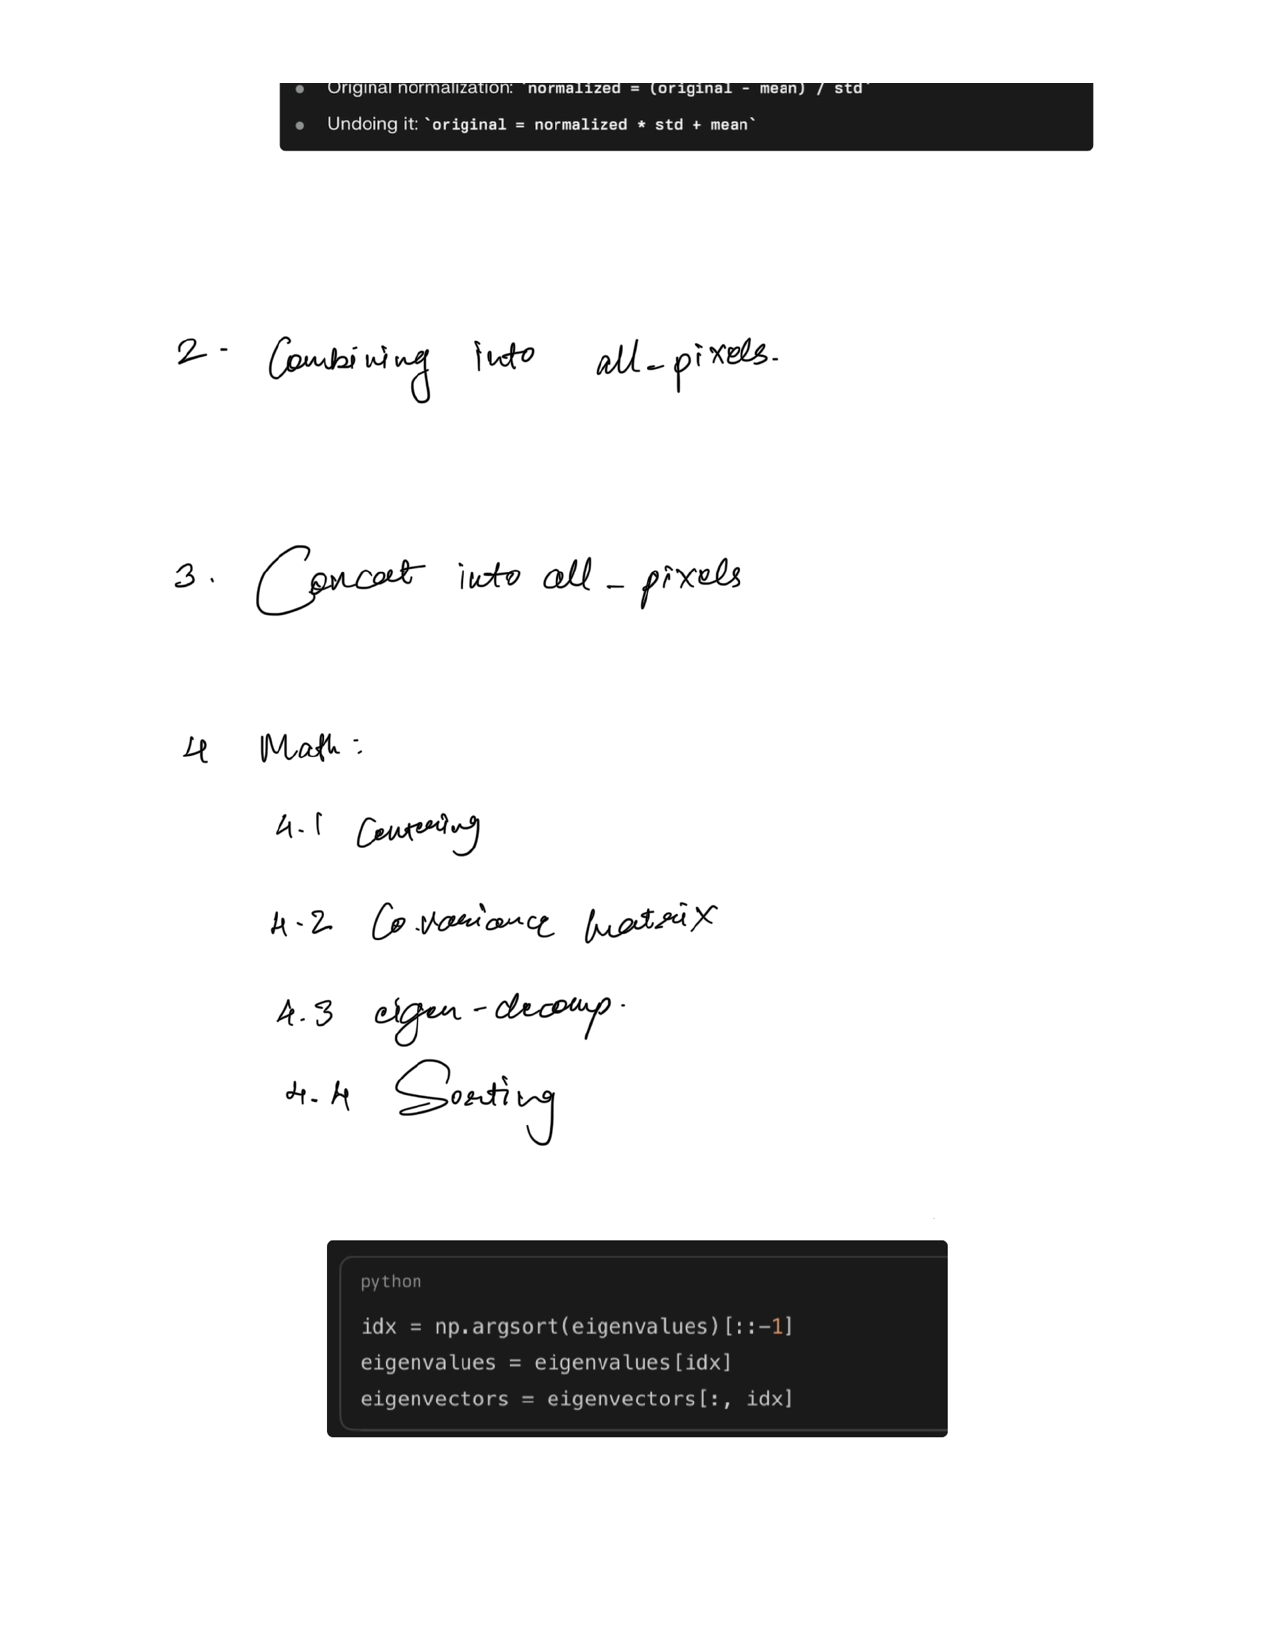 Original normalization: `normalized = (original - mean) / std`
Undoing it: `original = normalized * std + mean`
2 - Combining into all_pixels.
3. Concat into all_pixels
4 Math:
4.1 Centering
4.2 Co.variance matrix
4.3 eigen-decomp.
4.4 Sorting
python
idx = np.argsort(eigenvalues)[::-1]
eigenvalues = eigenvalues[idx]
eigenvectors = eigenvectors[:, idx]